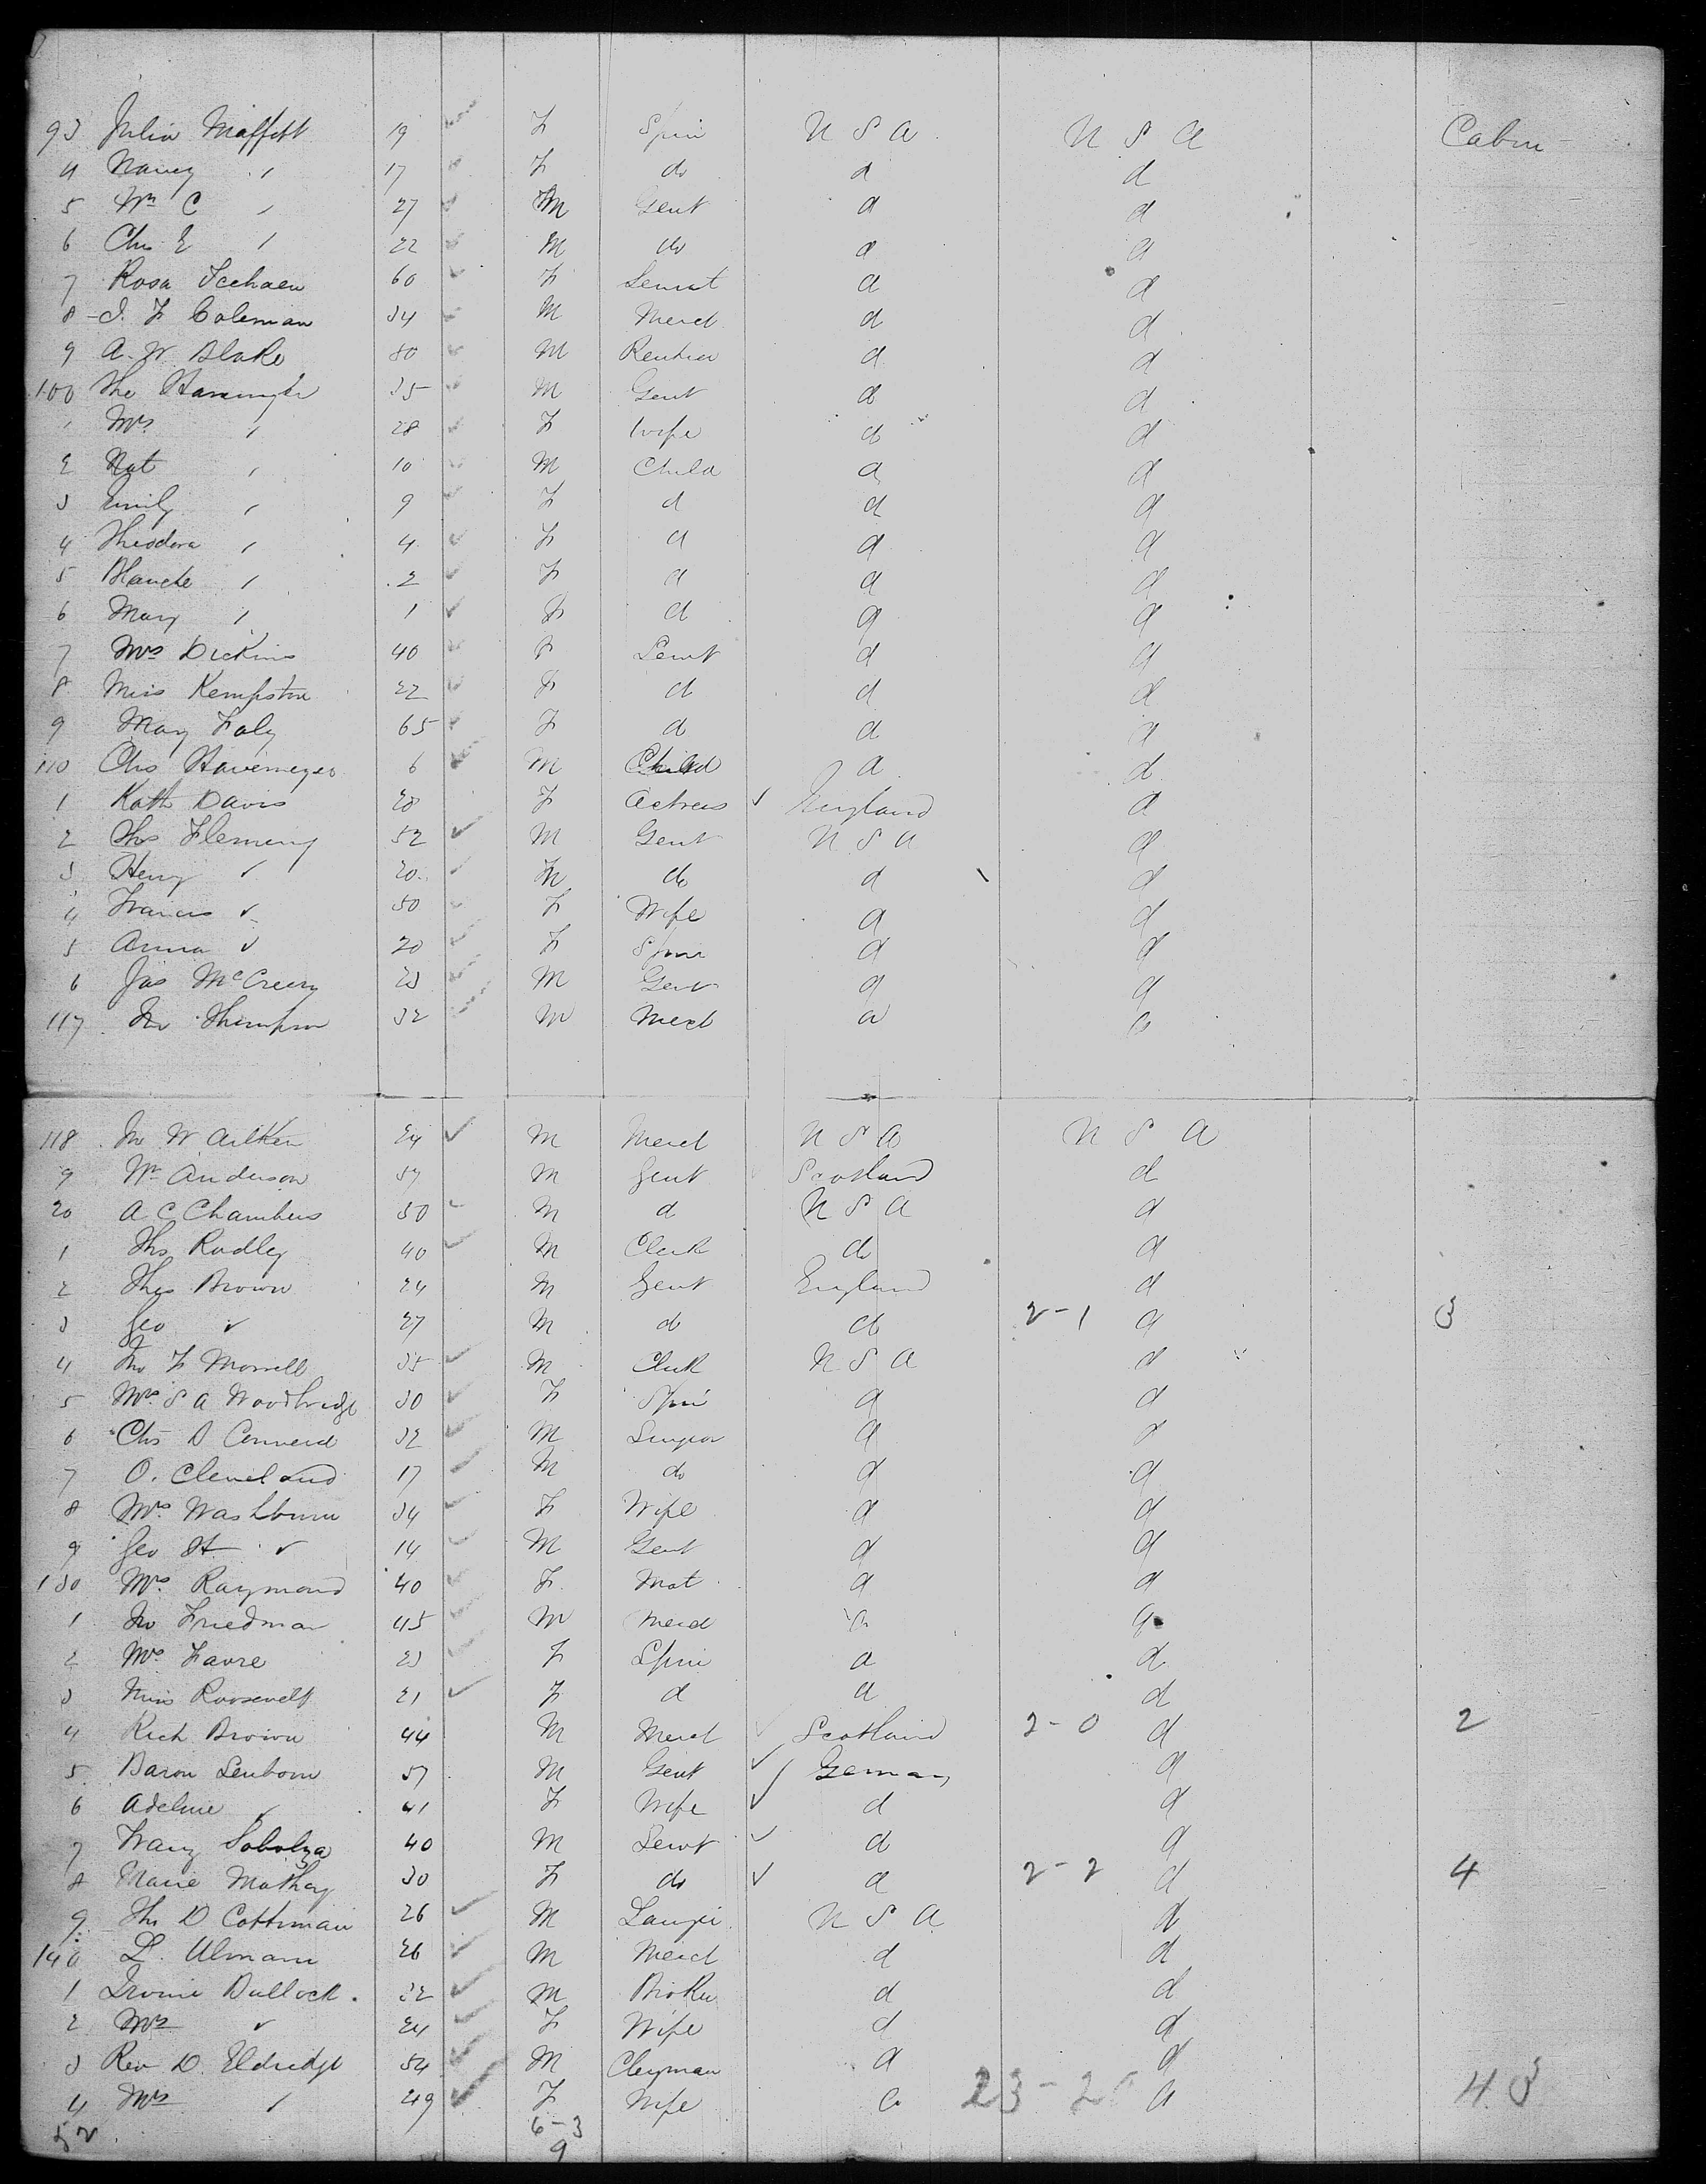 93 Julia Moffett 19 F Spin U S A U S A Cabin
4 Nancy " 17 F do d d
5 Wm C " 27 M Gent d d
6 Chs E " 22 M do d d
7 Rosa 60 F Servt d d
8 J. F Coleman 34 M Merct d d
9 A. W Blake 30 M d d
100 Theo Havemeyer 35 M Gent d d
1 Mrs " 28 F Wife d d
2 Nat " 10 M Child d d
3 Emily " 9 F d d d
4 Theodora " 4 F d d d
5 Blanche " 2 F d d d
6 Mary " 1 F d d d
7 Mrs Dickins 40 F Servt d d
8 Miss Kempston 22 F d d d
9 Mary Foley 65 F d d d
110 Chs Havemeyer 6 M Child d d
1 Kath Davis 28 F Actress England d
2 Ths Fleming 52 M Gent U S A d
3 Henry " 20 M do d d
4 Francis " 50 F Wife d d
5 Anna " 20 F Spin d d
6 Jas McCreery 23 M Gent d d
117 Jno Thompson 32 M Merct d d
118 Jno W Aitken 24 M Merct U S A U S A
9 Wm Anderson 57 M Gent Scotland d
20 A C Chambers 50 M d U S A d
1 Ths Radley 40 M Clerk do d
2 Ths Brown 24 M Gent England d
3 Geo " 27 M d do 2-1 d 3
4 Jno F Morrell 35 M Clerk U S A d
5 Mrs S A Woodbridge 30 F Spin d d
6 Chs D 32 M Surgeon d d
7 O. Cleveland 17 M do d d
8 Mrs Washburn 34 F Wife d d
9 Geo H " 14 M Gent d d
130 Mrs Raymond 40 F Mat d d
1 Jno Friedman 45 M Merct d d
2 Mrs Favre 23 F Spin d d
3 Miss Roosevelt 21 F d d d
4 Rich Brown 44 M Merct Scotland 2-0 d 2
5 Baron 57 M Gent German d
6 Adeline " 41 F Wife d d
7 Franz 40 M Servt d d
8 Marie Mathey 30 F do d 2-2 d 4
9 Ths D Cottman 26 M U S A d
140 L. Ulmann 26 M Merct d d
1 Irvine Bullock 32 M Broker d d
2 Mrs " 24 F Wife d d
3 Rev D. Eldridge 54 M Clergyman d d
4 Mrs " 49 F Wife d 23-20 d 43
52 6-3
9